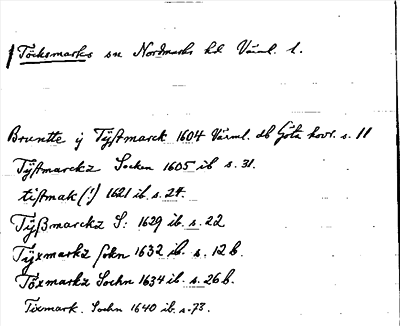 Töcksmarks sn Nordmarks hd Värml. l.
Bruntte ÿ Tÿstmarck 1604 Värml. db Göta hovr. s. 11
Tÿstmarckz Socken 1605 ib s. 31.
tistmak (!) 1621 ib. s. 24.
Tÿßmarckz S: 1629 ib. s. 22
Tÿxmarkz sokn 1632 ib. s. 12 b.
Töxmarkz Sochn 1634 ib. s. 26 b.
Tixmark. Sochn 1640 ib. s. 73.